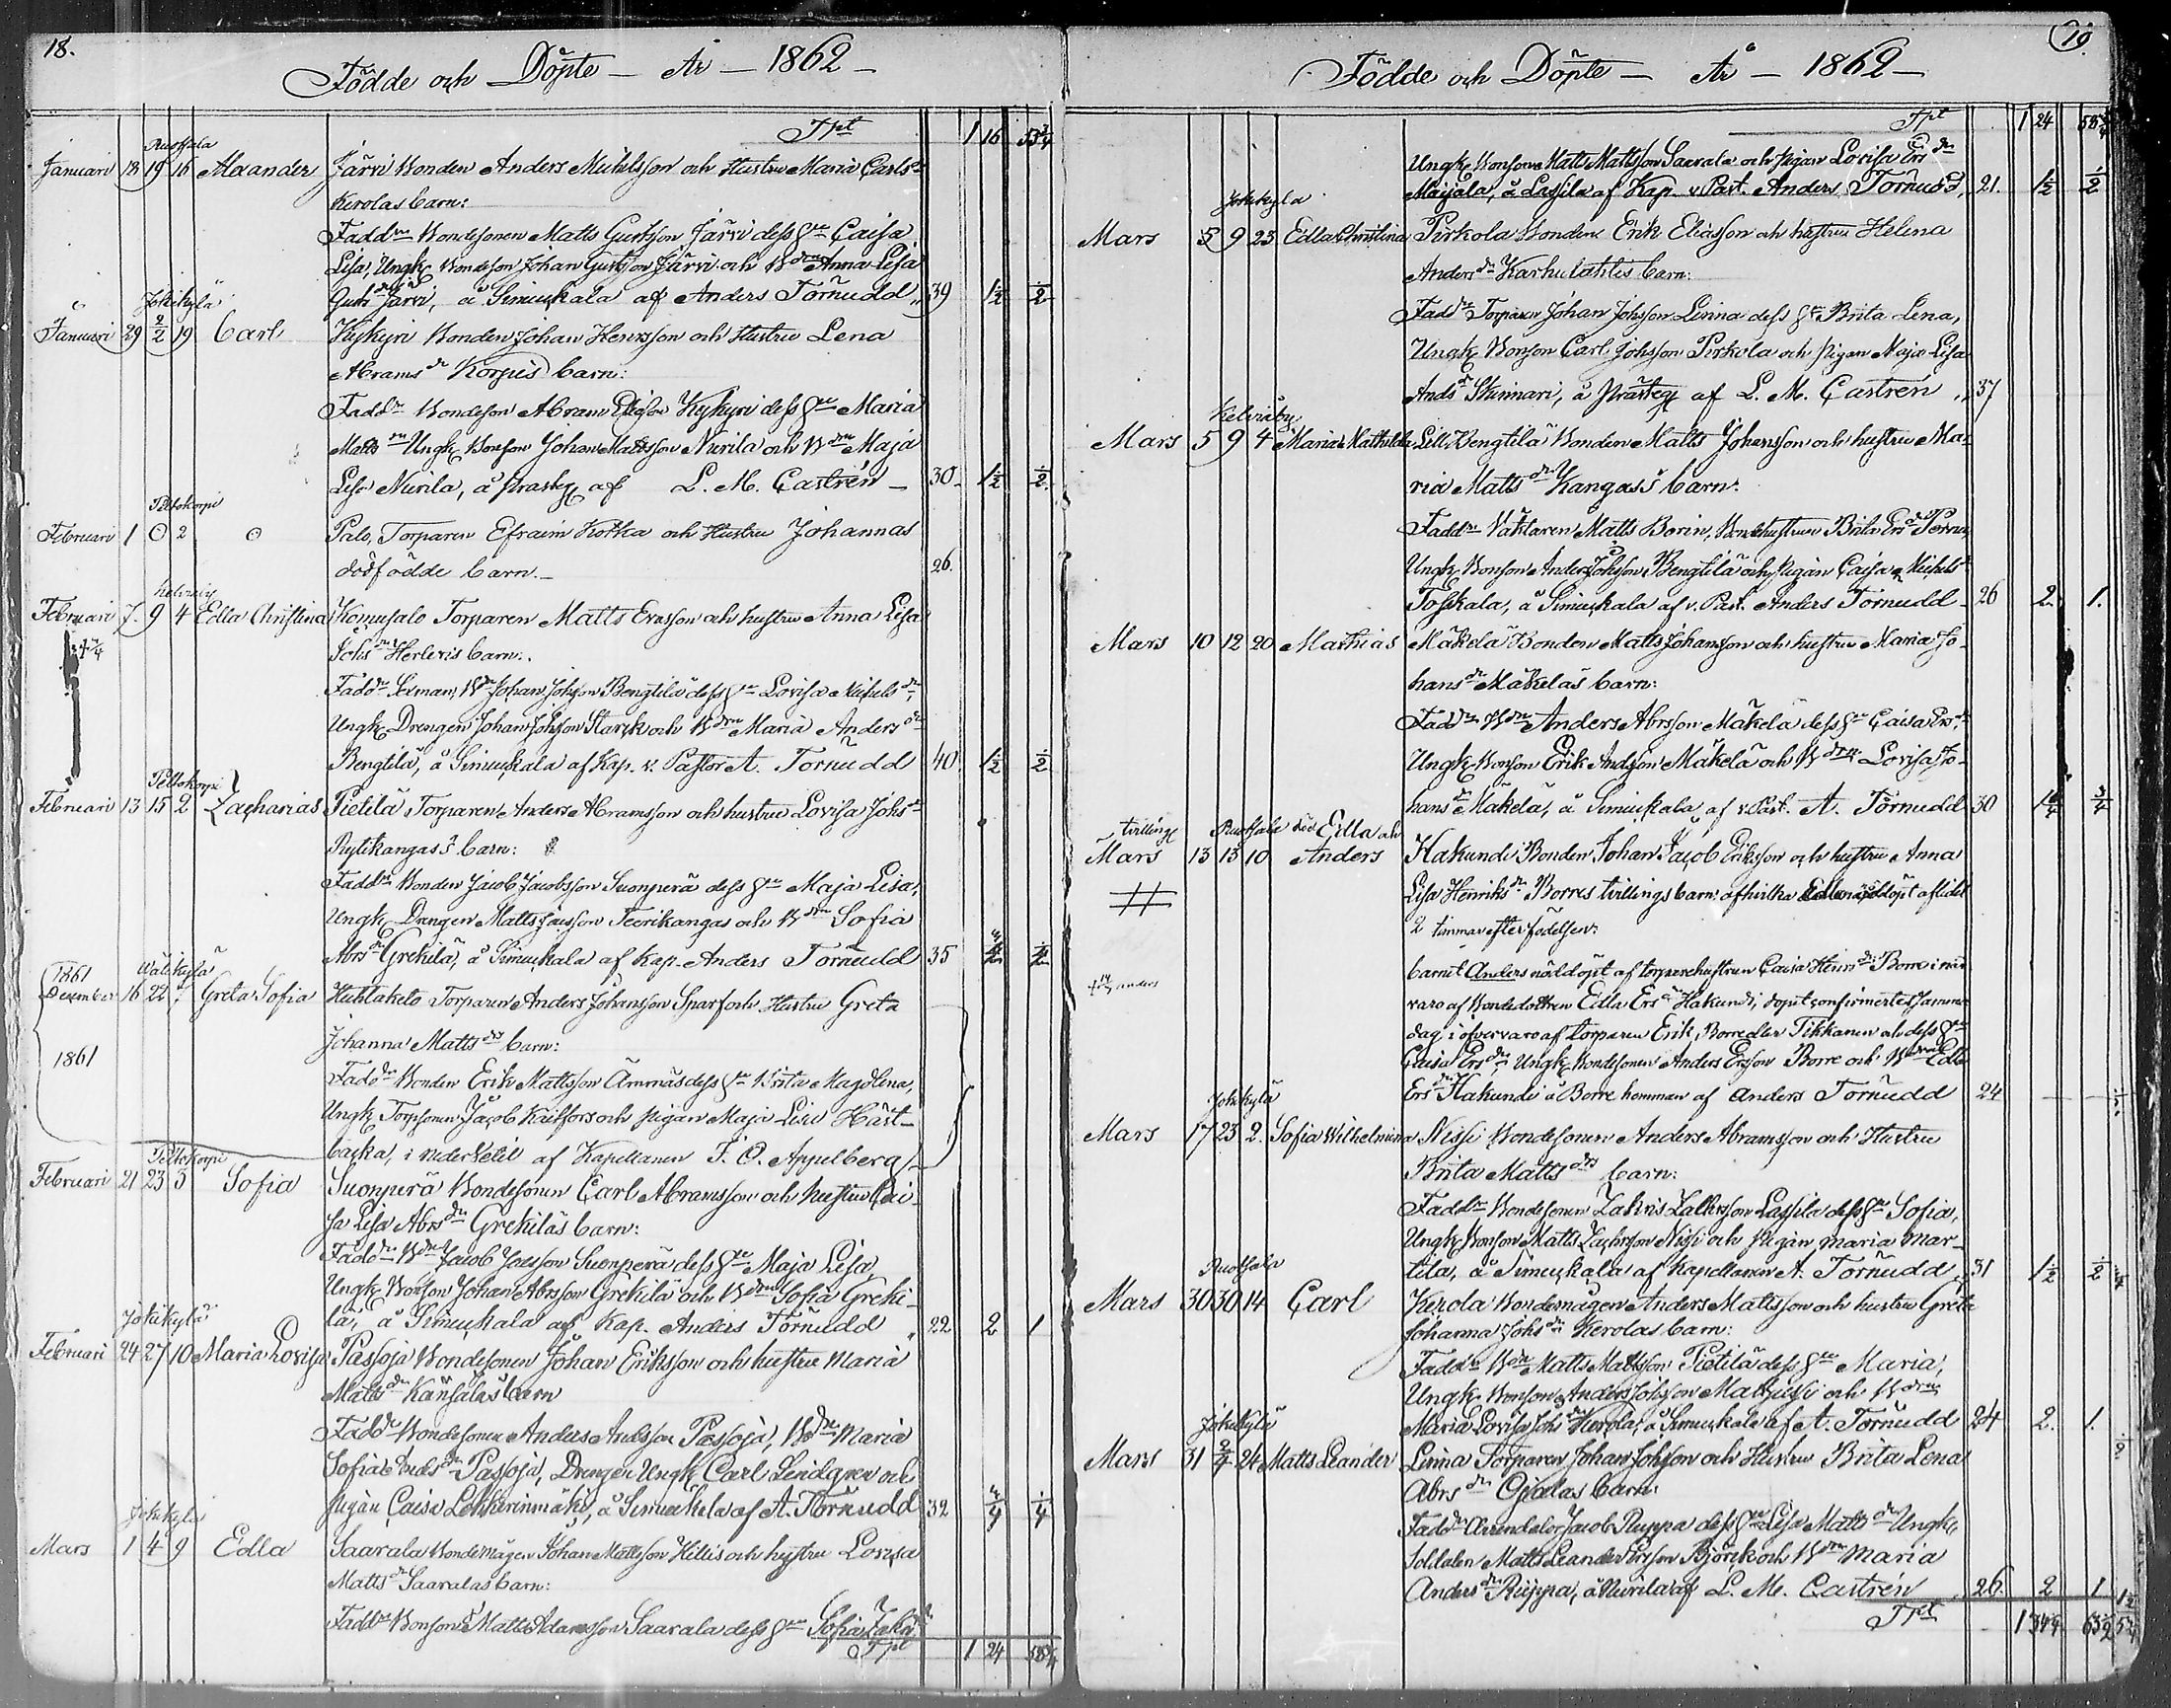 18.
Födde och Döpte — År — 1862 —
Tpt 1 16 55 3/4
Ruotsala
Januari 18 19 16 Alexander Järvi Bonden Anders Michelsson och Hustru Maria Carls dr
Kerolas barn:
Fadd rn Bondesonen Matts Gustsson Järvi dess h Caisa
Lisa, Ungk Bondeson Johan Gustsson Järvi och B dtrn Anna Lisa
Gust dr Järvi, å Simuskala af Anders Törnudd, 39 1 1/2 1/2
Jokikylä
Januari 29 2/2 19 Carl Kykyri Bonden Johan Henrsson och Hustru Lena
Abrams dr Korpis barn:
Fadd rn Bondeson Abram Eliasson Kykyri dess h Maria
Matts dr Ungk Bonson Johan Mattsson Nurila och B dtrn Maja
Lisa Nurila, å prästeg af L. M. Castrén — 30 1 1/2 1/2
Peltokorpi
Februari 1 O 2 O Palo, Torparen Efraim Kotka och Hustru Johannas
dödfödde barn. — 26.
Kelviåby
Februari 7. 9 4 Edla Christina Komusalo Torparen Matts Ersson och hustru Anna Lisa
Johs dr Herleris barn:
Fadd rn Sexman, B dn Johan Johsson Bengtilä dess h Lovisa Michels dr
Ungk Drengen Johan Johsson Starck och B dtrn Maria Anders dr
Bengtilä, å Simuskala af Kap. v. Pastor A. Törnudd 40 1 1/2 1/2
Peltokorpi
Februari 13 15 2 Zacharias Pietilä Torparen Anders Abramsson och hustru Lovisa Johs dr
Rytikangas's barn:
Fadd rn Bonden Jacob Jacobsson Suonperä dess h Maja Lisa,
Ungk Drengen Matts Jacsson Teerikangas och B dtrn Sofia
Abrs dr Grekilä, å Simuskala af Kap. Anders Törnudd 35
1861 Wälikylä
December 16 22 7 Greta Sofia Huhtaketo Torparen Anders Johansson Sparf och Hustru Greta
Johanna Matts drs barn:
1861
Fadd rn Bonden Erik Mattsson Ämmäs dess h Brita Magdlena,
Ungk Torpsonen Jacob Kaitfors och pigan Maja Lisa Häst-
backa, i nederVetil af Kapellanen F. O. Appelberg
Peltokorpi
Februari 21 23 5 Sofia Suonperä Bondesonen Carl Abramsson och hustru Cai-
sa Lisa Abrs dr Grekiläs barn:
Fadd rn B dn Jacob Jacsson Suonperä dess h Maja Lisa,
Ungk Bonson Johan Abrsson Grekilä och B dtrn Sofia Greki-
lä, å Simuskala af Kap. Anders Törnudd 22 2 1
Jokikylä
Februari 24 27 10 Maria Lovisa Passoja Bondesonen Johan Eriksson och hustru Maria
Matts dr Känsäläs barn
Fadd rn Bondesonen Anders Andsson Passoja, B dtrn Maria
Sofia Ands dr Passoja, Drengen Ungk Carl Lindgren och
pigan Caisa Lehkerinmäki, å Simuskala af A. Törnudd 32
Jokikylä
Mars 1 4 9 Edla Saarala Bondemågen Johan Mattsson Hillis och hustru Lovisa
Matts dr Saaralas barn:
Fadd rn Bonson Matts Adamsson Saarala dess h Sofia Zakr dr
Tpt 1 24 58 3/4
19.
Födde och Döpte — År — 1862 —
Tpt 1 24 58 3/4
Ungk Bonsonen Matts Mattsson Saarala och pigan Lovisa Ers dr
Maijala, å Lassila af Kap. v. Past. Anders Törnudd, 21. 1 1/2 1/2
Jokikyla
Mars 5 9 23 Edla Christina Pirkola Bonden Erik Eliasson och hustru Helena
Anders dr Karhulahtis barn:
Fadd rn Torparen Johan Johsson Linna dess h Brita Lena,
Ungk Bonson Carl Johsson Pirkola och pigan Maja Lisa
Ands dr Skinnari, å prästeg af L. M. Castrén 37
Kelviåby
Mars 5 9 4 Maria Mathilda Lill Bengtilä Bonden Matts Johansson och hustru Ma-
ria Matts dr Kangas's barn:
Fadd rn Vaktaren Matts Borin, Bondehustrun Brita Ers dr
Ungk Bonson Anders Johsson Bengtilä och pigan Caisa Michels dr
Toskala, å Simuskala af v. Past. Anders Törnudd 26 2. 1.
Mars 10 12 20 Mathias Mäkelä Bonden Matts Johansson och hustru Maria Jo-
hans dr Mäkeläs barn:
Fadd rn B dn Anders Abrsson Mäkelä dess h Caisa Ers dr
Ungk Bonson Erik Andsson Mäkelä och B dtrn Lovisa Jo-
hans dr Mäkelä, å Simuskala af v. Past. A. Törnudd 30 3/4
tvilling Ruotsala död Edla och
Mars 13 13 10 Anders Hakundi Bonden Johan Jacob Eriksson och hustru Anna
Lisa Henriks dr Borres tvillings barn: af hvilka Edla nöddöpt aflidit
2 timmar efter födelsen.
barnet Anders nöddöpt af torparehustrun Caisa Henrs dr Borre i när-
varo af Bondedottren Edla Ers dr Hakundi, dopet confirmerted samma
dag i öfvervaro af torparen Erik, Borre eller Tikkanen och dess h
Caisa Ers dr, Ungk Bondesonen Anders Ersson Borre och B dtrn Edla
Ers dr Hakundi å Borre hemman af Anders Törnudd 24
Jokikylä
Mars 17 23 2. Sofia Wilhelmina Nissi Bondesonen Anders Abramsson och Hustru
Brita Matts drs barn:
Fadd rn Bondesonen Zakris Zakrsson Lassila dess h Sofia,
Ungk Bonson Matts Zachrsson Nissi och pigan Maria Mar-
tila, å Simuskala af Kapellanen A. Törnudd 31 1 1/2 1/2
Ruotsala
Mars 30 30 14 Carl Kerola Bondemågen Anders Mattsson och hustru Greta
Johanna Johs dr Kerolas barn:
Fadd rn B dn Matts Mattsson Pietilä dess h Maria,
Ungk Bonson Anders Johsson Mattjussi och B dtrn
Maria Lovisa Johs dr Kerola, å Simuskala af A. Törnudd 24 2. 1.
Jokikylä
Mars 31 2/4 24 Matts Leander Linna Torparen Johan Johsson och Hustru Brita Lena
Abrs dr Ojalas barn:
Fadd rn Arrendator Jacob Ruppa dess h Lisa Matts dr Ungk
Soldaten Matts Leander Ersson Björck och B dtrn Maria
Anders dr Ruppa, å Nurila af L. M. Castrén 26. 2 1
Tpt